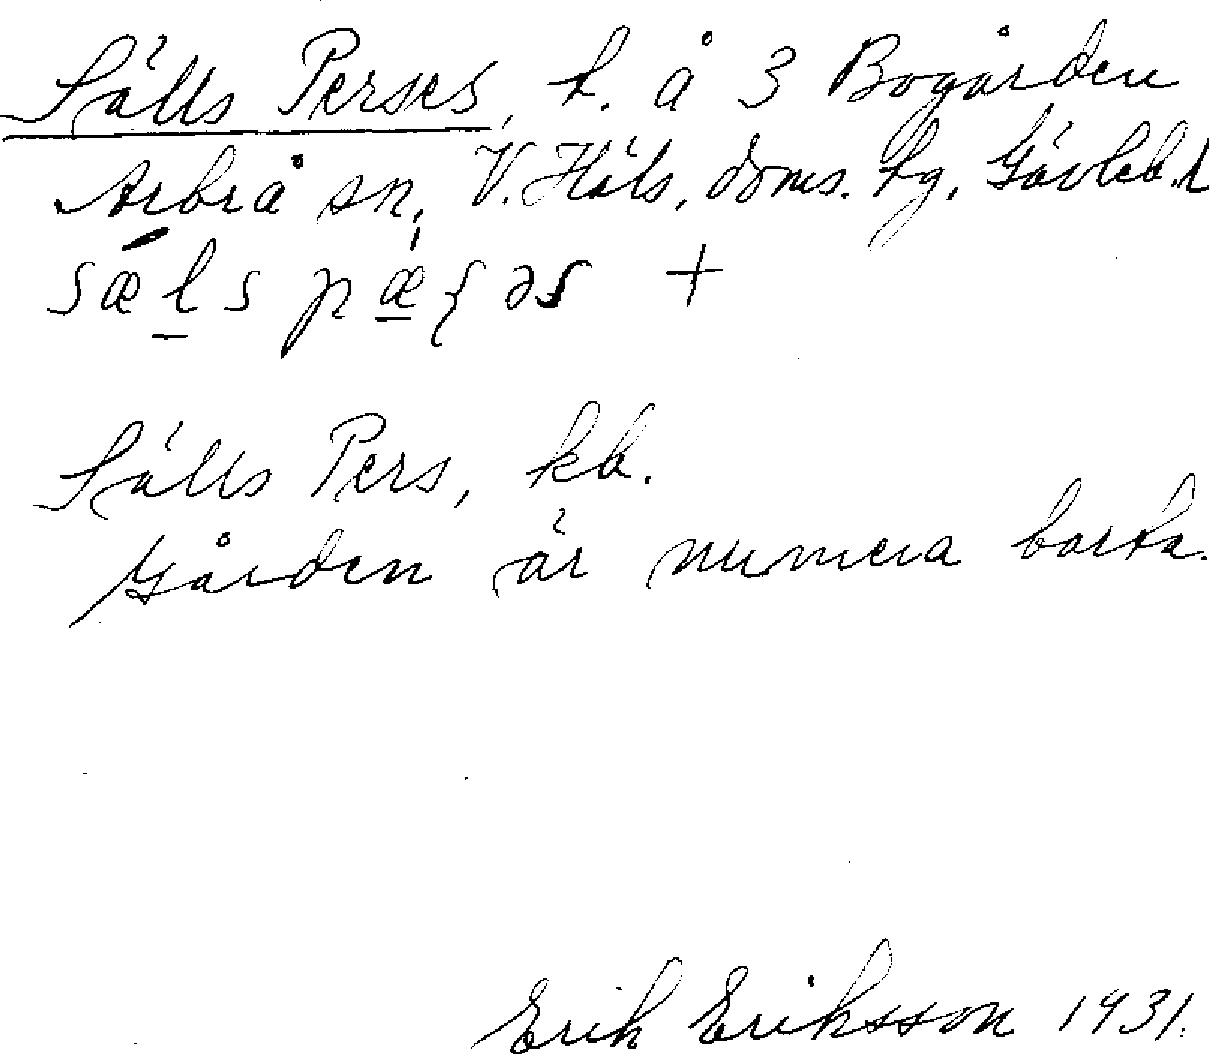 Sälls Perses, t. å 3 Bogården
Arbrå sn, V. Häls. doms. tg. Gävleb. l
Sälls Pers, kb.
Gården är numera borta.
Erik Eriksson 1931.